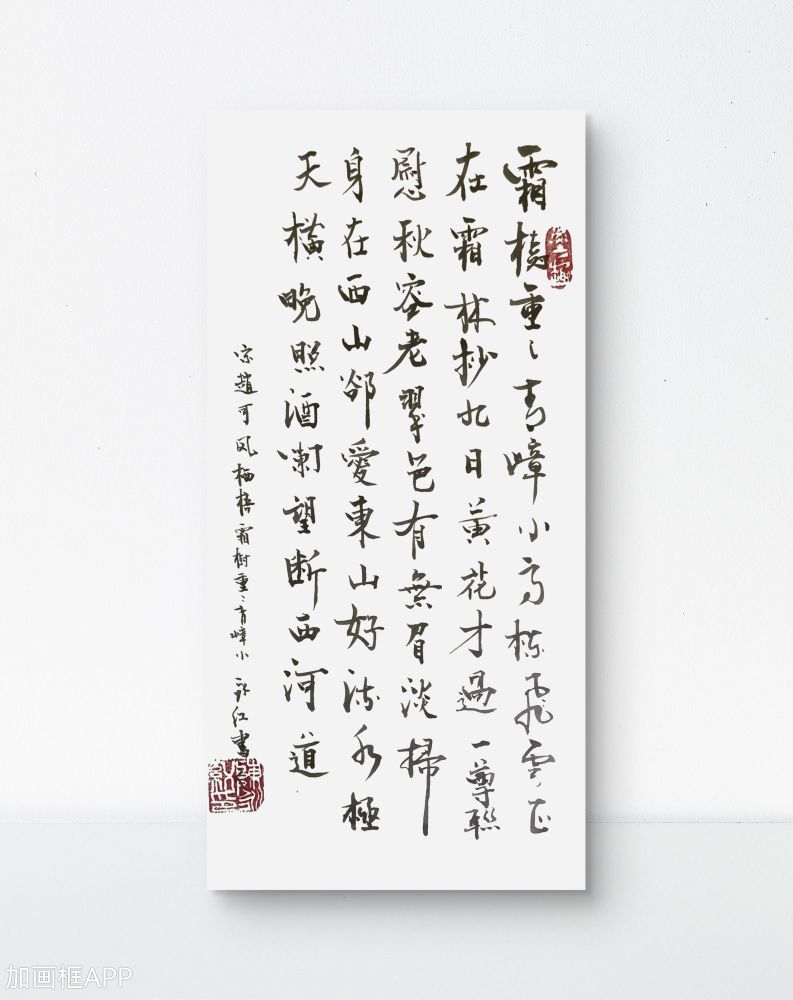 霜樹重〻青嶂小高棟飛雲正
在霜林抄九日黃花才過一尊聯
慰秋容老翠色有無眉淡掃
身在西山郤愛東山好流水極
天橫晚照酒闌望斷西河道
宋趙可鳳栖梧霜樹重〻青嶂小 紅書
加画框APP